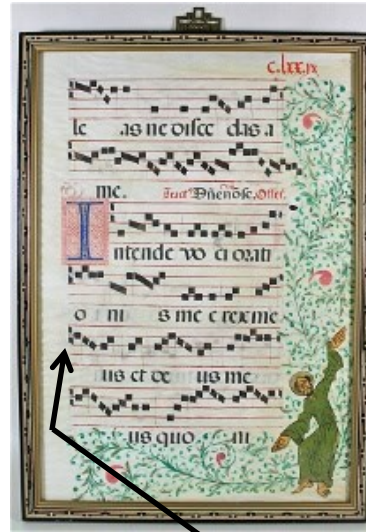 c. lxx. ix
le as ne discc das a
me. Dñe nõse, Offet.
Intende vo ci orati
o ni s me e rex me
us et de us me
us quo ni